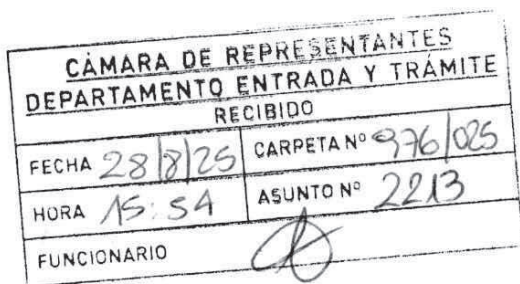 CÁMARA DE REPRESENTANTES
DEPARTAMENTO ENTRADA Y TRÁMITE
RECIBIDO
FECHA 28/8/25 CARPETA Nº 976/025
HORA 15:54 ASUNTO Nº 2213
FUNCIONARIO